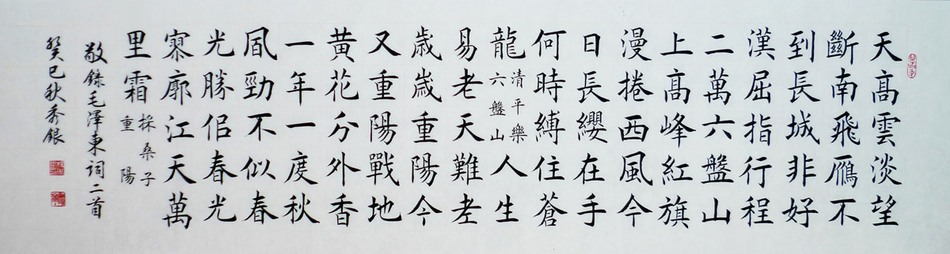 天高雲淡望
斷南飛鴈不
到長城非好
漢屈指行程
二萬六盤山
上高峰紅旗
漫捲西風今
日長纓在手
何時縛住蒼
龍
清平樂
六盤山
人生
易老天難老
歲歲重陽今
又重陽戰地
黃花分外香
一年一度秋
風勁不似春
光勝佀春光
寥廓江天萬
里霜
採桑子
重陽
敬錄毛澤東詞二首
癸巳秋秀銀